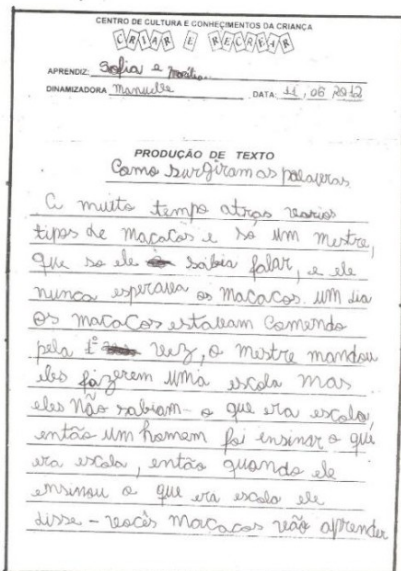 CENTRO DE CULTURA E CONHECIMENTOS DA CRIANÇA
CRIAR E RECREAR
APRENDIZ: Sofia e
DINAMIZADORA Manuelle DATA: 11, 06 2012
PRODUÇÃO DE TEXTO
Como surgiram as palavras
A muito tempo atras varios
tipos de macacos e so um mestre,
que so ele sabia falar, e ele
nunca esperava os macacos. um dia
os macacos estavam comendo
pela 1º vez, o mestre mandou
eles fazerem uma escola mas
eles não sabiam - o que era escola,
então um homem foi ensinar o qui
era escola, então quando ele
ensinou o que era escola ele
disse - vocês macacos vão aprender